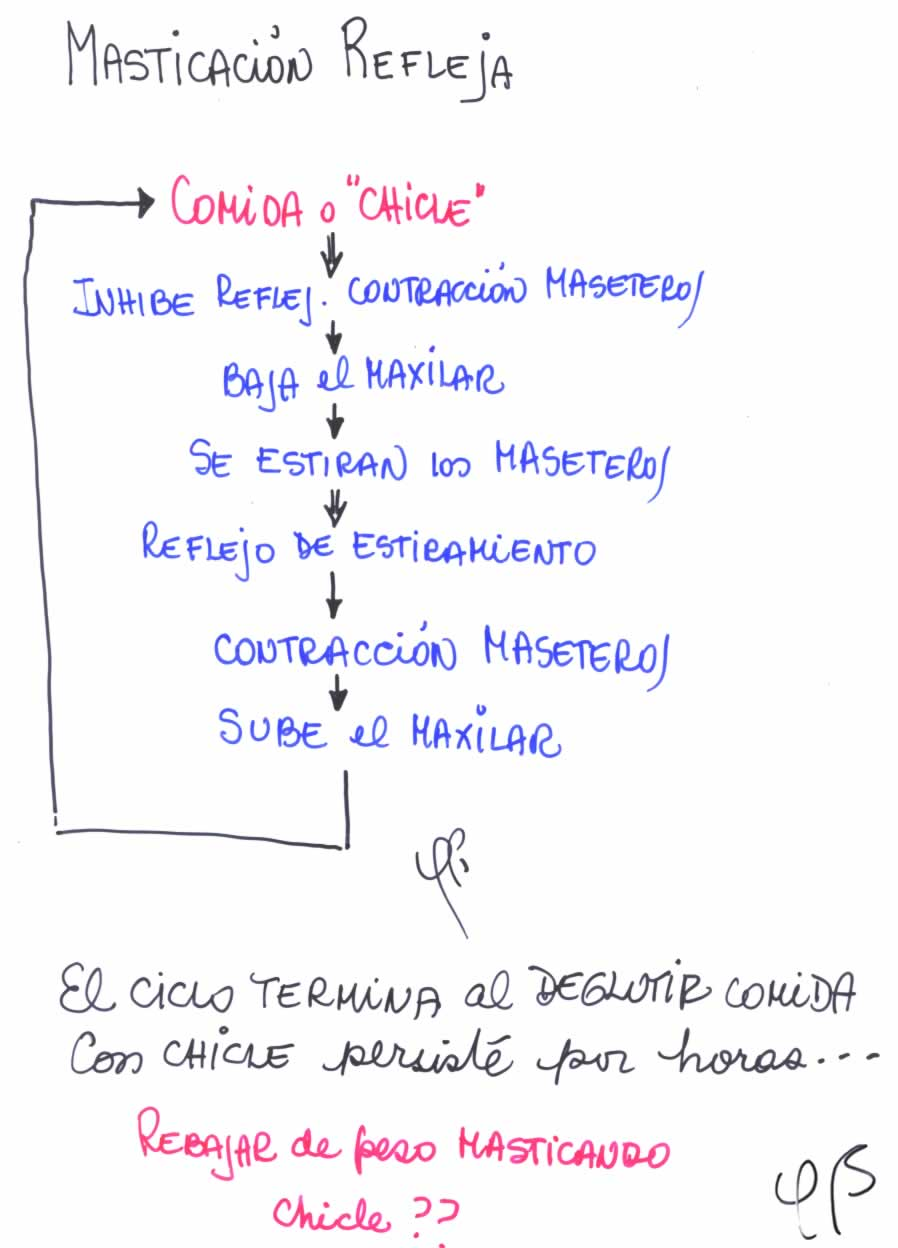 MASTICACIÓN REFLEJA
COMIDA o "CHICLE"
INHIBE REFLEJ. CONTRACCIÓN MASETEROS
BAJA el MAXILAR
SE ESTIRAN los MASETEROS
REFLEJO DE ESTIRAMIENTO
CONTRACCIÓN MASETEROS
SUBE el MAXILAR
El ciclo TERMINA al DEGLUTIR COMIDA
Con CHICLE persiste por horas...
REBAJAR de peso MASTICANDO
chicle ??